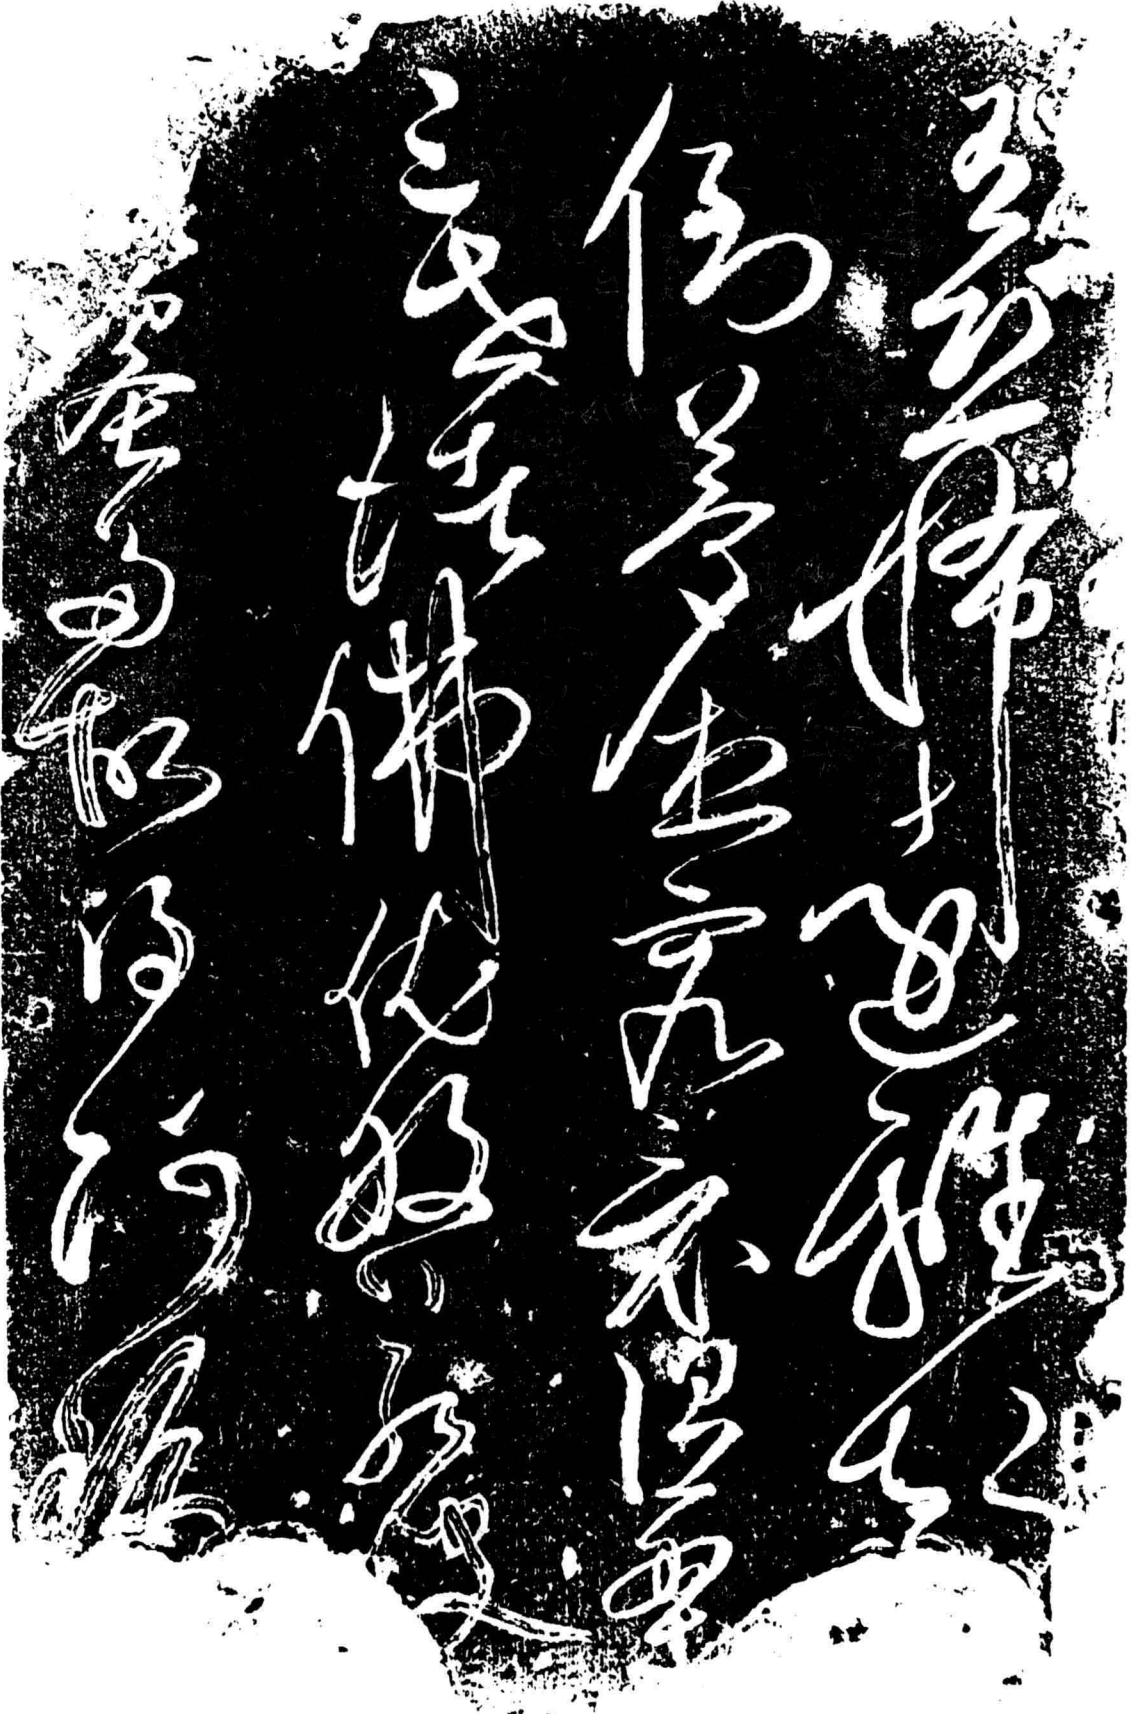 有恐怖遠離顛
倒夢想究竟涅槃
三世諸佛依般若波
羅蜜多故得阿耨